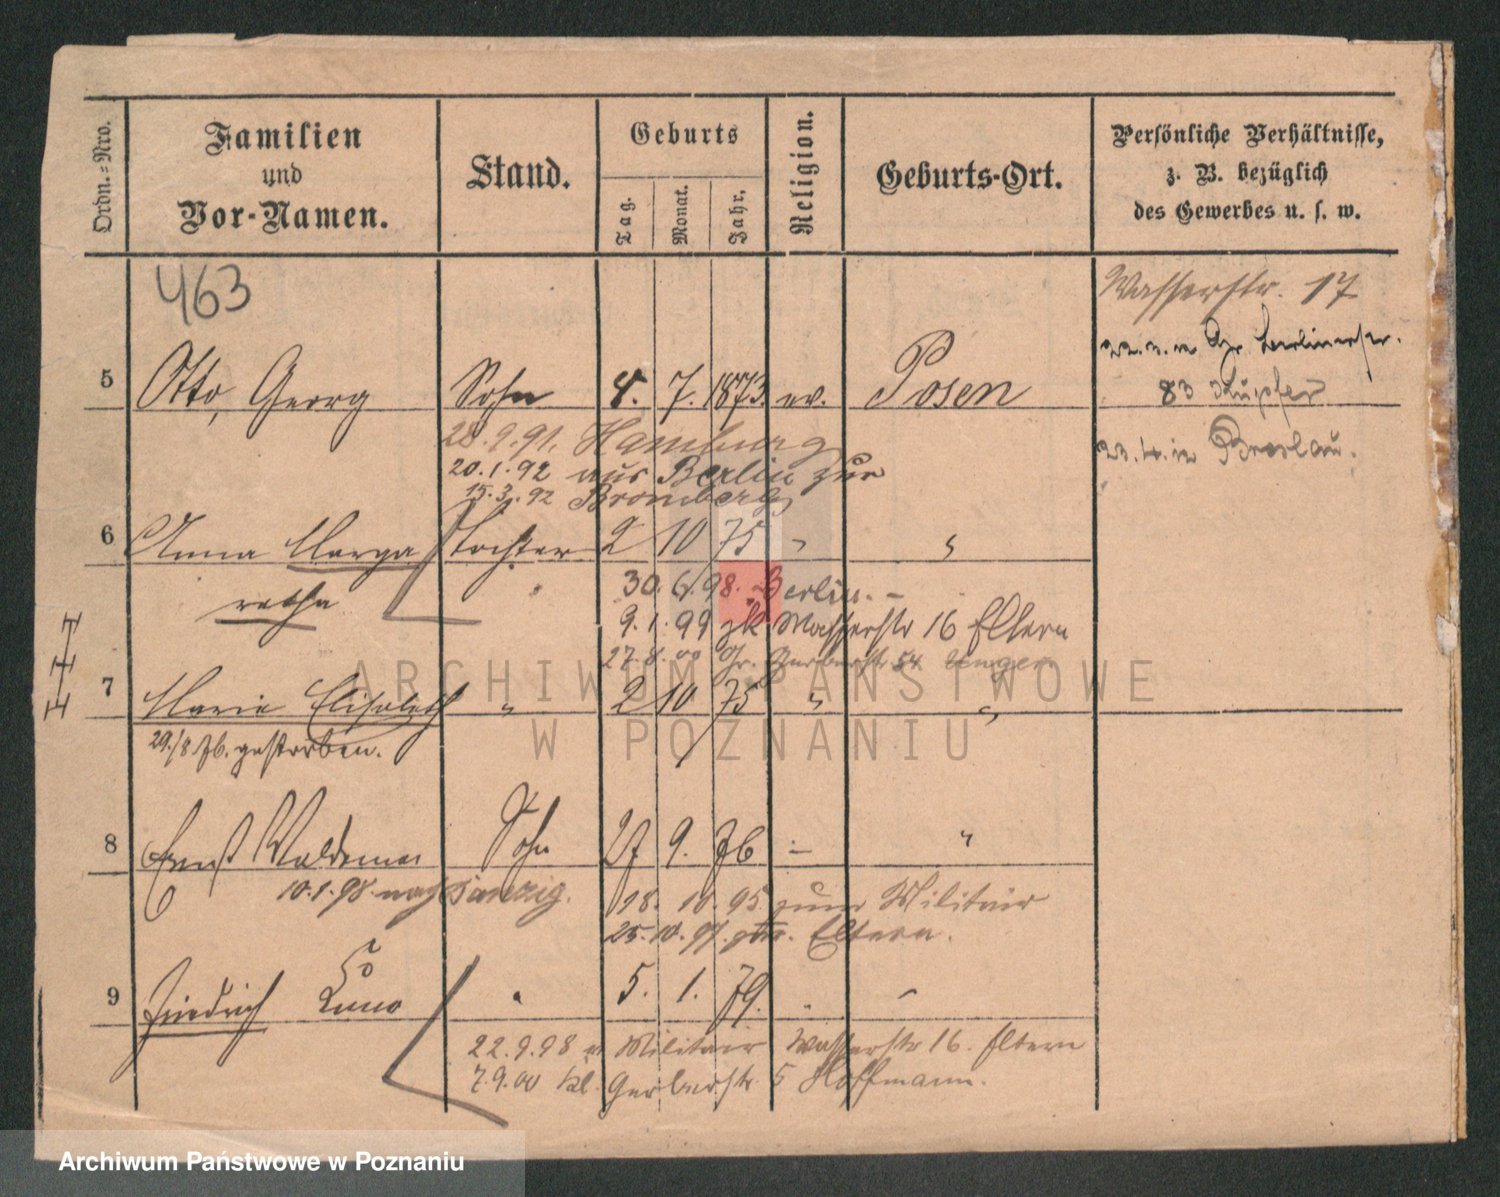 Ordn.-Nro.
Familien
und
Vor-Namen.
Stand.
Geburts
Tag.
Monat.
Jahr.
Religion.
Geburts-Ort.
Persönliche Verhältnisse,
z. B. bezüglich
des Gewerbes u. s. w.
463
Wasserstr. 17
Gr Berlinerstr.
5 Otto, Georg Sohn 8. 7. 1873. ev. Posen
83 Küpfer
28.9.91. Hamburg
23.4. in Breslau.
20.1.92 aus Berlin zur
15.3.92 Bromberg
6 Anna Marga Tochter 2 10 75 "
retha "
30.6.98. Berlin. -
9.1.99 zk Wasserstr 16 Eltern
27.8.00 Gr. Gerberstr 54 Unger
7 Marie Elisabeth " 2 10 75 " "
29./8 76. gestorben.
8 Ernst Waldemar Sohn 27 9. 76 - "
10.1.98. nach Danzig.
18. 10. 95 zum Militair
25.10.97. zur. Eltern.
9 Friedrich Kuno " 5. 1. 79. "
22.9.98 v Militair Wasserstr 16. Eltern
7.9.00 Kl. Gerberstr 5 Hoffmann.
ARCHIWUM PAŃSTWOWE
W POZNANIU
Archiwum Państwowe w Poznaniu